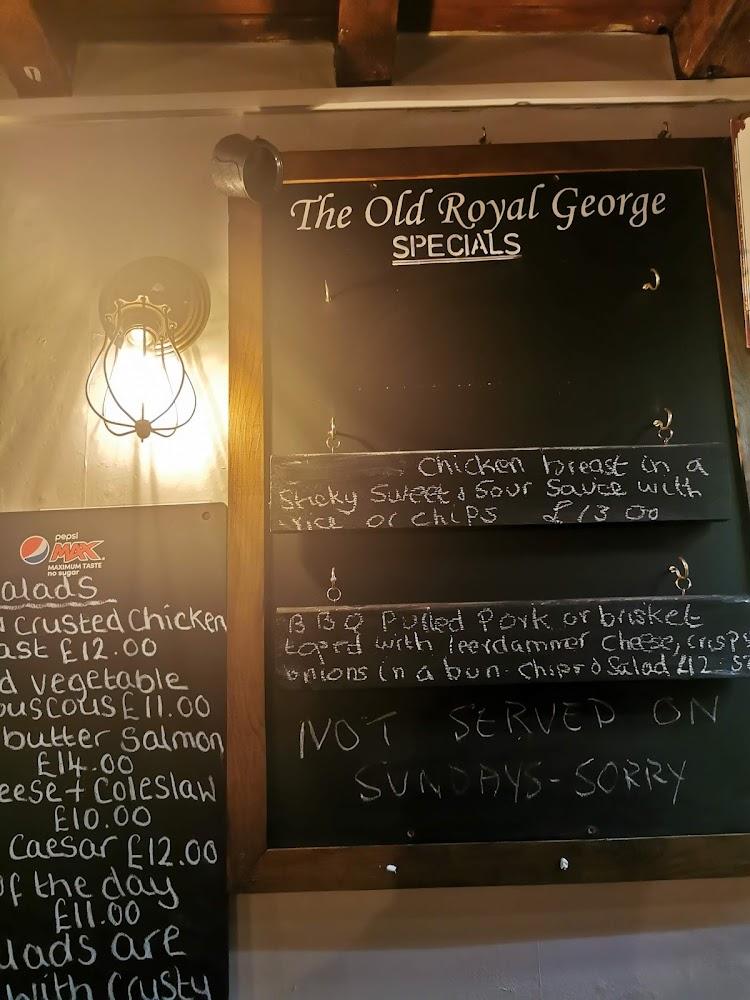 The Old Royal George
SPECIALS
Chicken breast in a
Sticky Sweet & Sour Sauce with
rice or chips £13 00
BBQ Pulled Pork or brisket
toped with leerdammer cheese, crispy
onions in a bun. Chips & Salad £12.5
NOT SERVED ON
SUNDAYS - SORRY
pepsi
MAX
MAXIMUM TASTE
no sugar
alads
crusted Chicken
ast £12.00
d vegetable
ouscous £11.00
butter Salmon
£14.00
eese + Coleslaw
£10.00
Caesar £12.00
of the day
£11.00
lads are
with Crusty